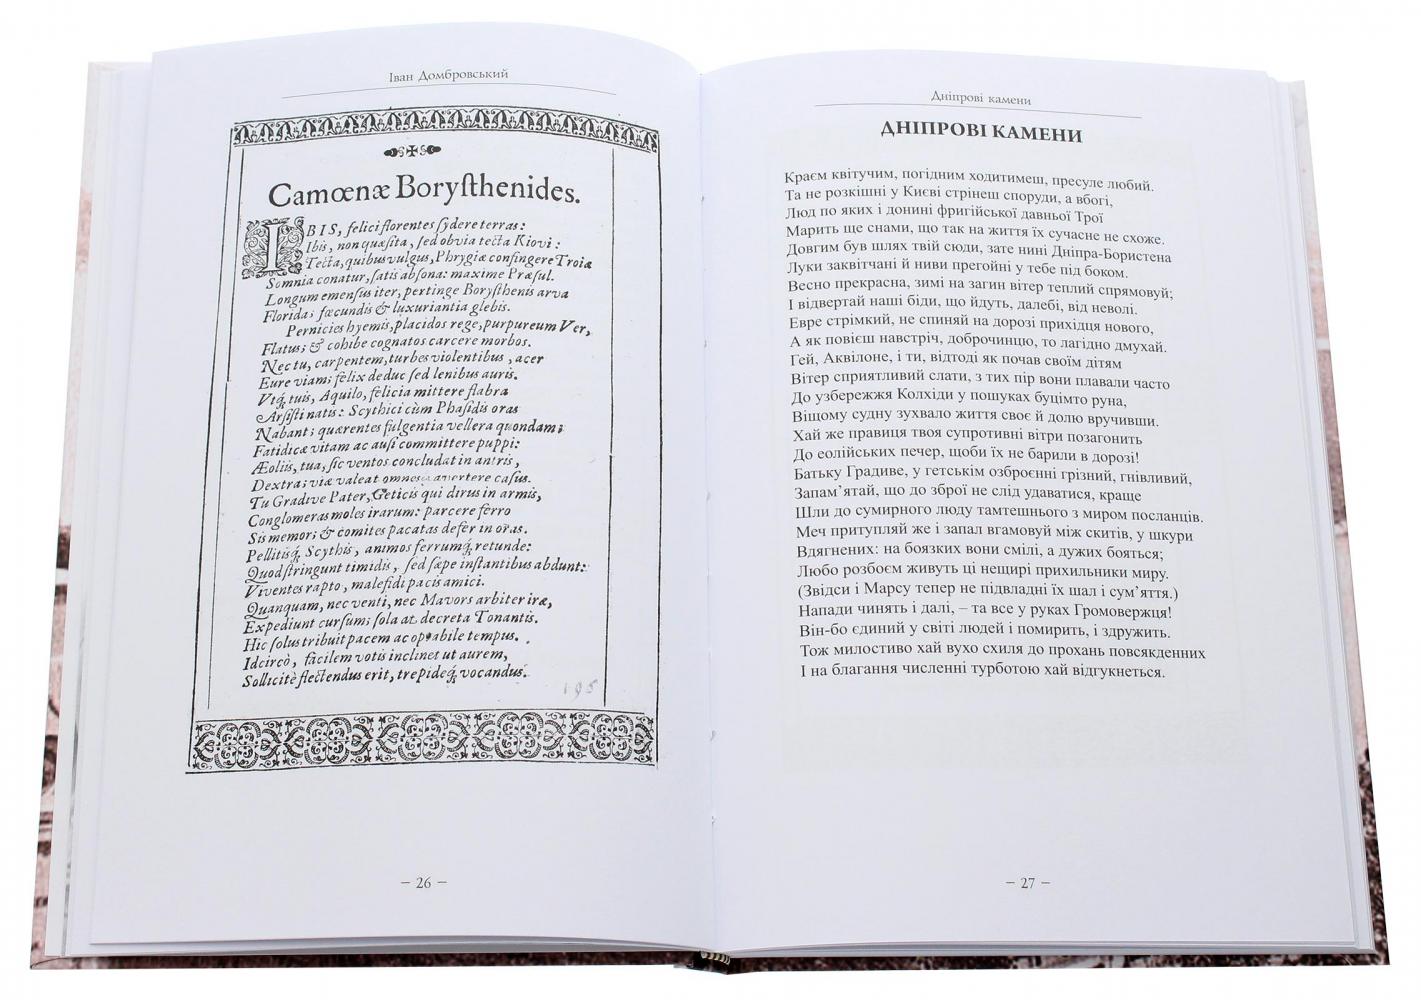 Іван Домбровський
Camœnæ Boryſthenides.
IBIS, felici florentes ſydere terras:
Ibis, non quæſita, ſed obvia tecta Kiovi:
Tecta, quibus vulgus, Phrygiæ confingere Troiæ
Somnia conatur, ſatis abſona: maxime Præſul.
Longum emenſus iter, pertinge Boryſthenis arva
Florida; fœcundis & luxuriantia glebis.
Pernicies hyemis, placidos rege, purpureum Ver,
Flatus; & cohibe cognatos carcere morbos.
Nec tu, carpentem, turbes violentibus, acer
Eure viam; felix deduc ſed lenibus auris.
Vtq́; tuis, Aquilo, felicia mittere flabra
Arſiſti natis: Scythici cùm Phaſidis oras
Nabant; quærentes fulgentia vellera quondam;
Fatidicæ vitam ac auſi committere puppi:
Æoliis, tua, ſic ventos concludat in antris,
Dextra; viæ valeat omnes avertere caſus.
Tu Gradive Pater, Geticis qui dirus in armis,
Conglomeras moles irarum: parcere ferro
Sis memor; & comites pacatas defer in oras.
Pellitiſq́; Scythis, animos ferrumq́; retunde:
Quod ſtringunt timidis, ſed ſæpe inſtantibus abdunt:
Viventes rapto, malefidi pacis amici.
Quanquam, nec venti, nec Mavors arbiter iræ,
Expediunt curſum; ſola at decreta Tonantis.
Hic ſolus tribuit pacem ac optabile tempus.
Idcircò, facilem votis inclinet ut aurem,
Sollicitè flectendus erit, trepideq́; vocandus.
195
– 26 –
Дніпрові камени
ДНІПРОВІ КАМЕНИ
Краєм квітучим, погідним ходитимеш, пресуле любий.
Та не розкішні у Києві стрінеш споруди, а вбогі,
Люд по яких і донині фригійської давньої Трої
Марить ще снами, що так на життя їх сучасне не схоже.
Довгим був шлях твій сюди, зате нині Дніпра-Бористена
Луки заквітчані й ниви прегойні у тебе під боком.
Весно прекрасна, зимі на загин вітер теплий спрямовуй;
І відвертай наші біди, що йдуть, далебі, від неволі.
Евре стрімкий, не спиняй на дорозі прихідця нового,
А як повієш навстріч, доброчинцю, то лагідно дмухай.
Гей, Аквілоне, і ти, відтоді як почав своїм дітям
Вітер сприятливий слати, з тих пір вони плавали часто
До узбережжя Колхіди у пошуках буцімто руна,
Віщому судну зухвало життя своє й долю вручивши.
Хай же правиця твоя супротивні вітри позагонить
До еолійських печер, щоби їх не барили в дорозі!
Батьку Градиве, у гетськім озброєнні грізний, гнівливий,
Запам’ятай, що до зброї не слід удаватися, краще
Шли до сумирного люду тамтешнього з миром посланців.
Меч притупляй же і запал вгамовуй між скитів, у шкури
Вдягнених: на боязких вони смілі, а дужих бояться;
Любо розбоєм живуть ці нещирі прихильники миру.
(Звідси і Марсу тепер не підвладні їх шал і сум’яття.)
Напади чинять і далі, – та все у руках Громовержця!
Він-бо єдиний у світі людей і помирить, і здружить.
Тож милостиво хай вухо схиля до прохань повсякденних
І на благання численні турботою хай відгукнеться.
– 27 –